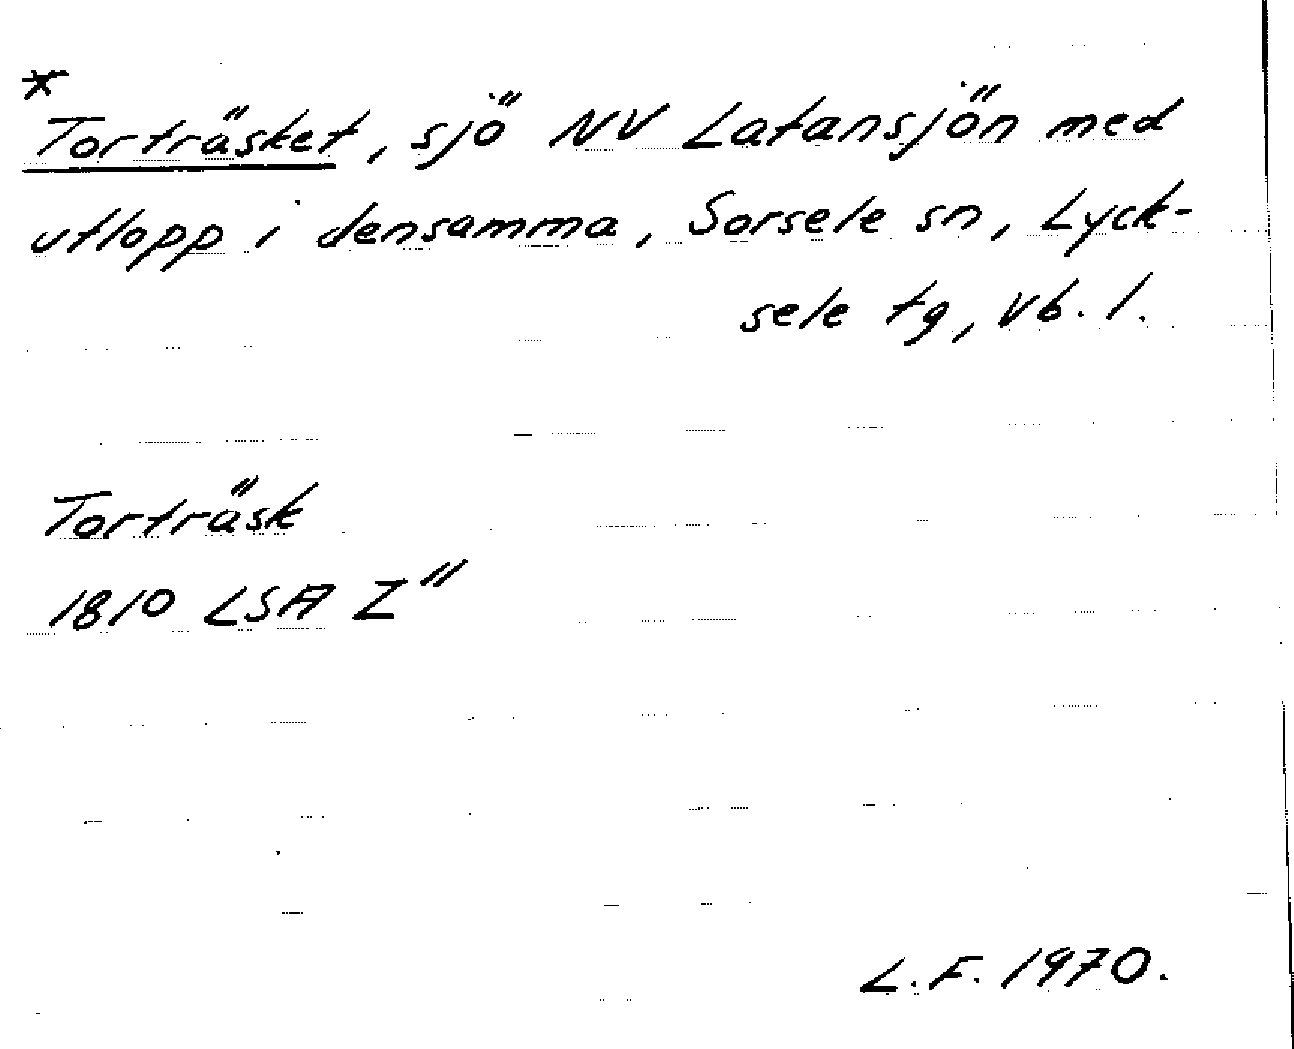 *
Torträsket, sjö NV Latansjön med
utlopp i densamma, Sorsele sn, Lyck-
sele tg, Vb. l.
Torträsk
1810 LSA Z"
L.F. 1970.